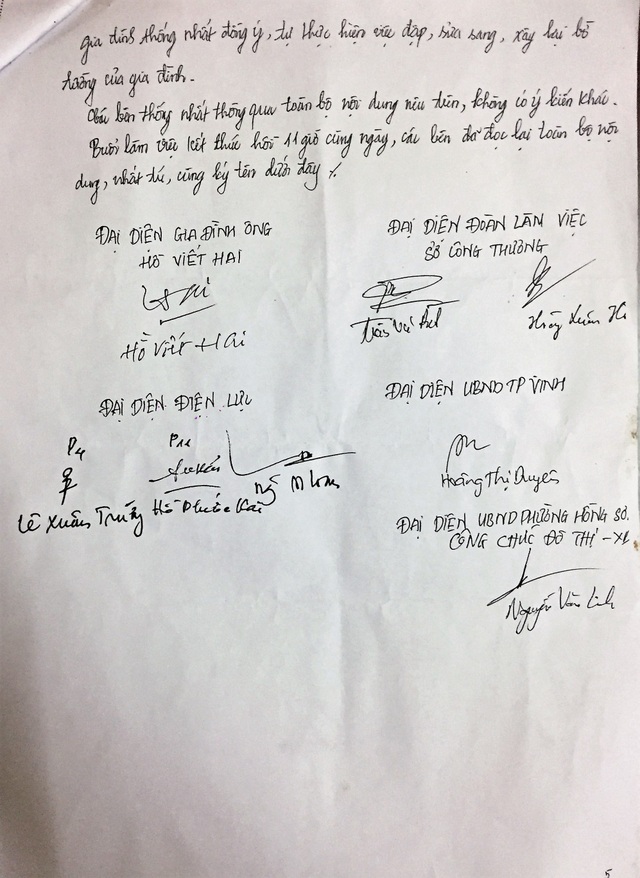 gia đình thống nhất đồng ý, tự thực hiện việc đập, sửa sang, xây lại bờ
tường của gia đình.
Các bên thống nhất thông qua toàn bộ nội dung nêu trên, không có ý kiến khác.
Buổi làm việc kết thúc hồi 11 giờ cùng ngày, các bên đã đọc lại toàn bộ nội
dung, nhất trí, cùng ký tên dưới đây ./.
ĐẠI DIỆN GIA ĐÌNH ÔNG
HỒ VIẾT HẢI
Hồ Viết Hải
ĐẠI DIỆN ĐOÀN LÀM VIỆC
SỞ CÔNG THƯƠNG
ĐẠI DIỆN ĐIỆN LỰC
P4
Lê Xuân Trường
P11
Hồ Phước
ĐẠI DIỆN UBND TP VINH
Hoàng Thị Duyên
ĐẠI DIỆN UBND PHƯỜNG HỒNG SƠ.
CÔNG CHỨC ĐÔ THỊ - XD
Nguyễn Văn Linh
5